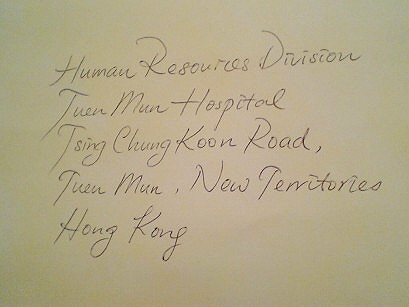 Human Resources Division
Tuen Mun Hospital
Tsing Chung Koon Road,
Tuen Mun, New Territories
Hong Kong